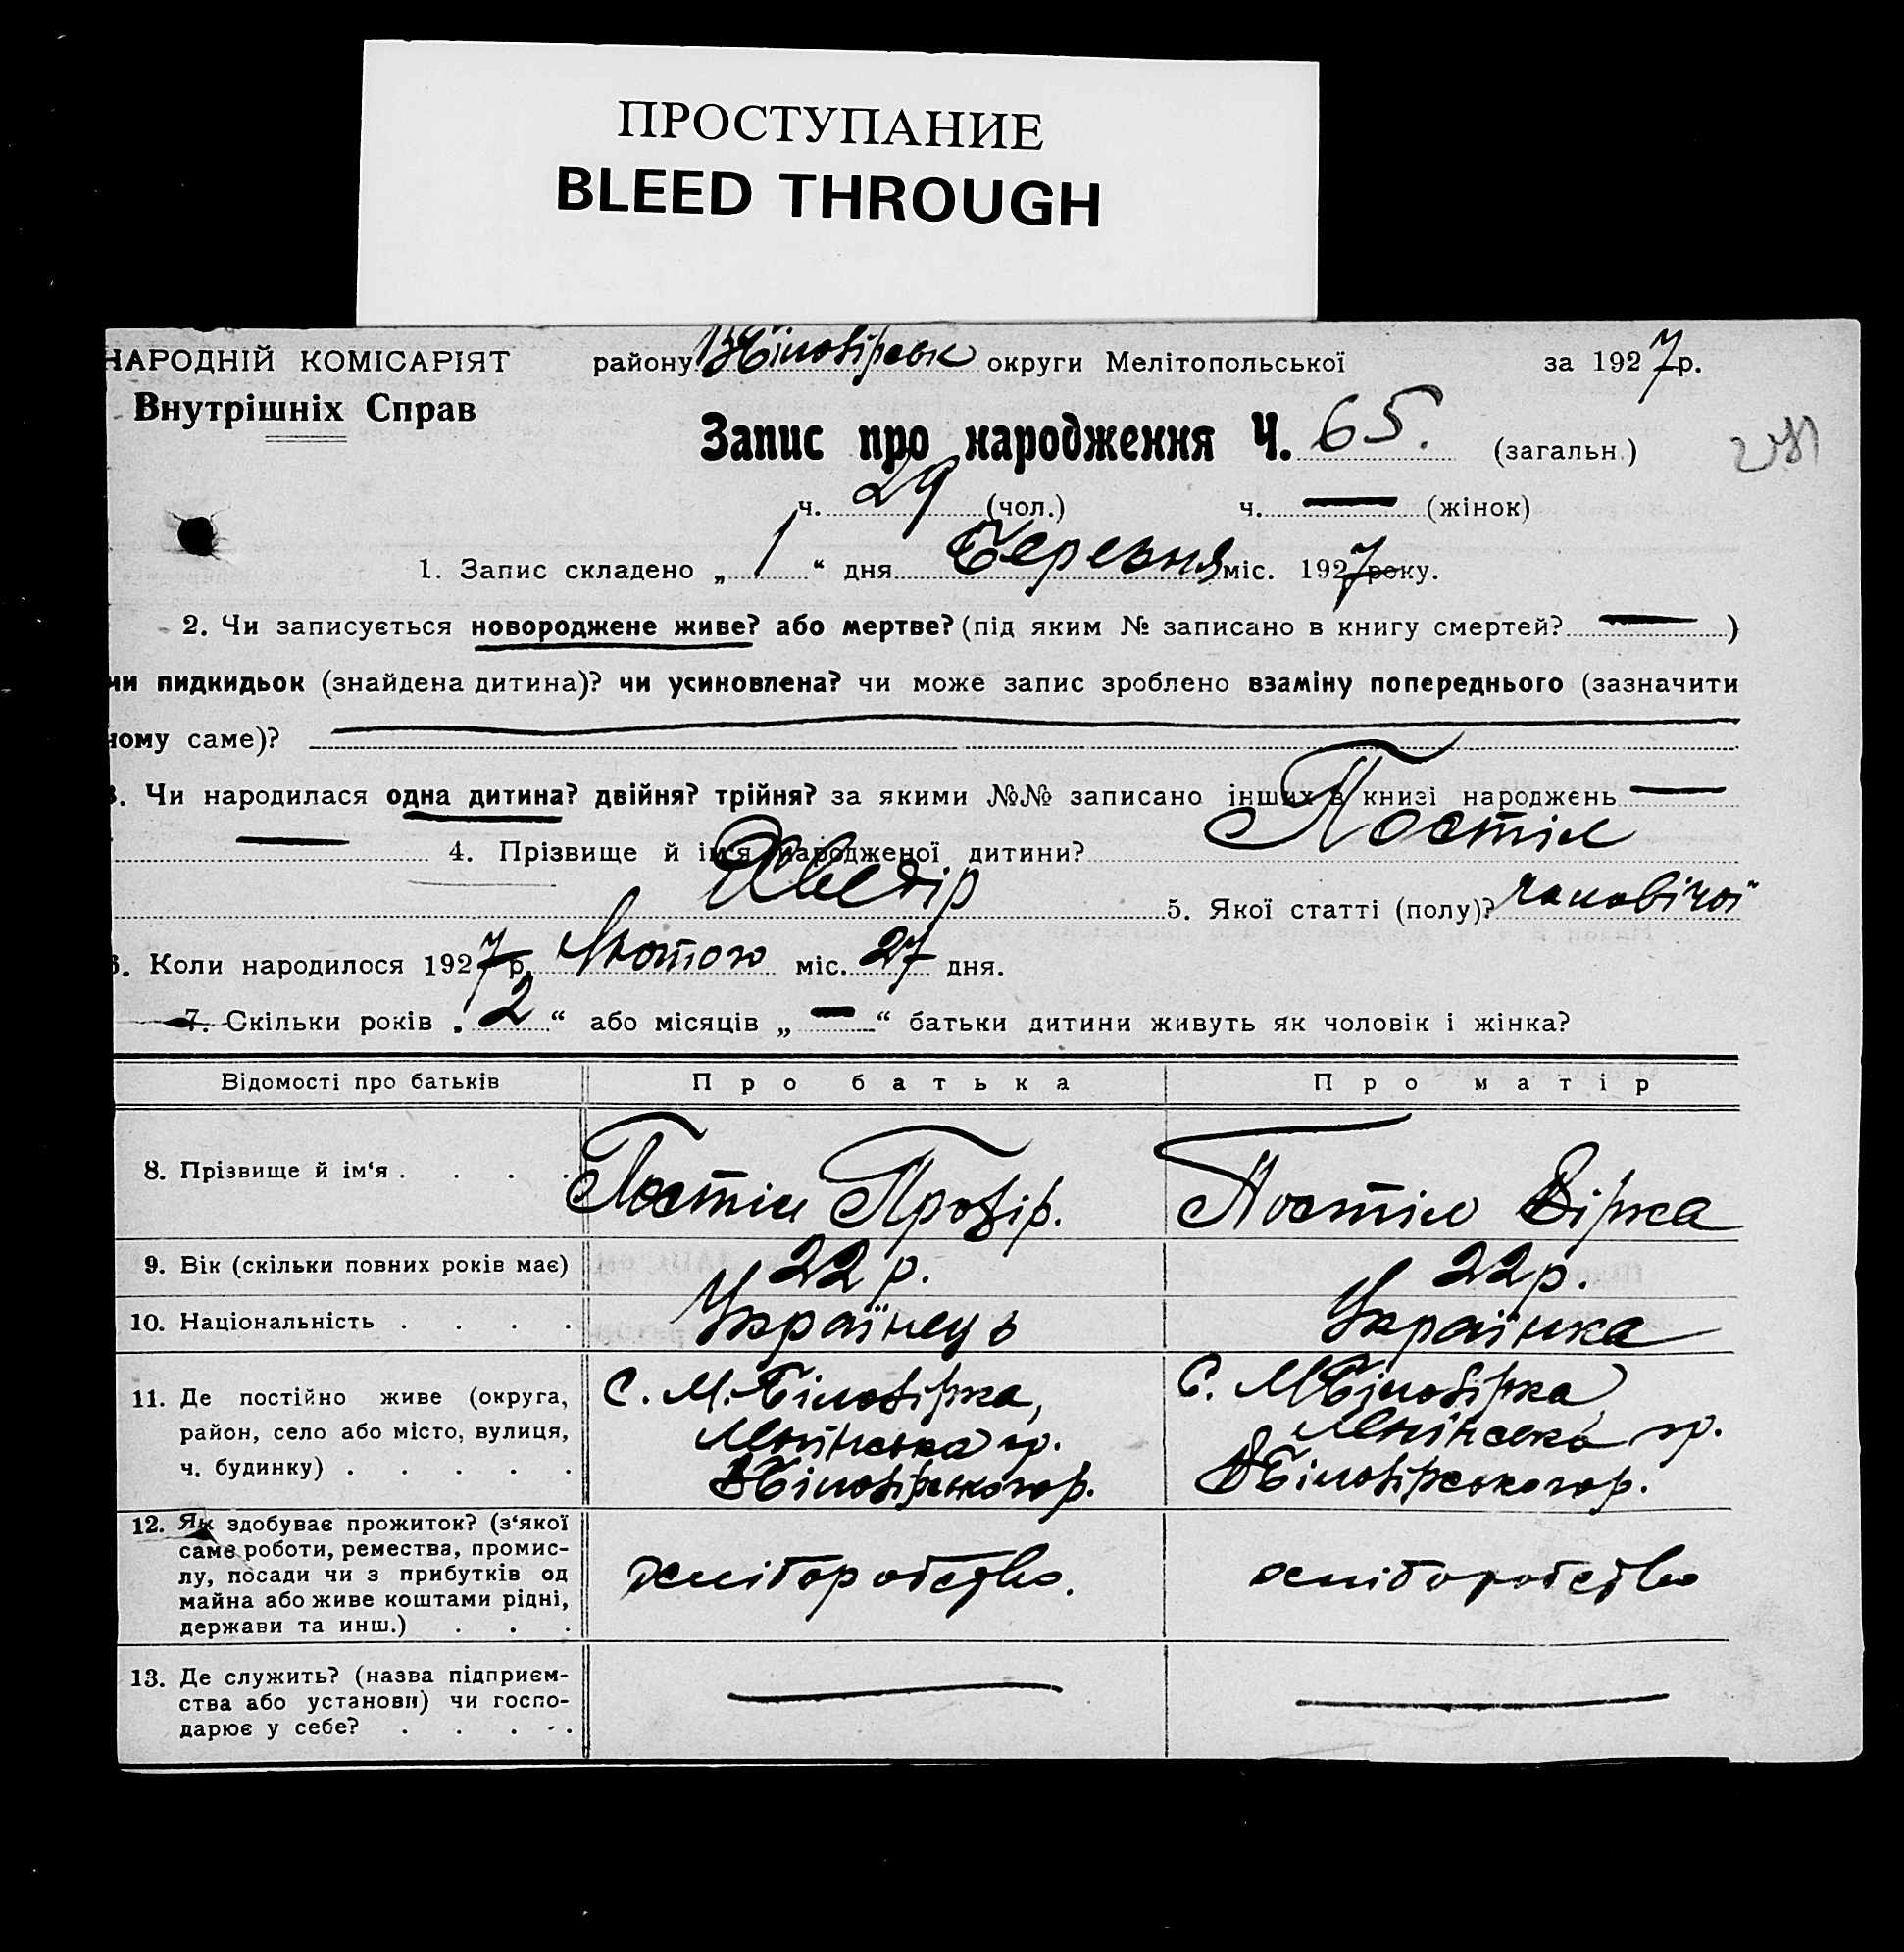 ПРОСТУПАНИЕ
BLEED THROUGH
НАРОДНІЙ КОМІСАРІЯТ району В Біловірськ округи Мелітопольської за 1927 р.
Внутрішніх Справ
Запис про народження Ч. 65. (загальн.)
ч. 29 (чол.) ч. — (жінок)
1. Запис складено „ 1 “ дня Березня міс. 1927 року.
2. Чи записується новороджене живе? або мертве? (під яким № записано в книгу смертей? — )
чи пидкидьок (знайдена дитина)? чи усиновлена? чи може запис зроблено взаміну попереднього (зазначити
чому саме)?
3. Чи народилася одна дитина? двійня? трійня? за якими №№ записано інших в книзі народжень —
— 4. Прізвище й ім'я народженої дитини? Постіл
5. Якої статті (полу)? чоловічої
6. Коли народилося 1927 р. Лютого міс. 27 дня.
7. Скільки років „ 2 “ або місяців „ — “ батьки дитини живуть як чоловік і жінка?
Відомості про батьків Про батька Про матір
8. Прізвище й ім‘я . . . . Постіл Постіл Вірка
9. Вік (скільки повних років має) 22 р. 22 р.
10. Національність . . . . Українець Українка
11. Де постійно живе (округа, С. М. Біловірка, С. М Біловірка,
район, село або місто, вулиця,
ч. будинку) . . . . . В Біловірського р. В Біловірського р.
12. Як здобуває прожиток? (з‘якої
саме роботи, ремества, промис-
лу, посади чи з прибутків од хліборобство. хліборобство
майна або живе коштами рідні,
держави та инш.) . . .
13. Де служить? (назва підприєм-
ства або установи) чи госпо- — —
дарює у себе? . . . .